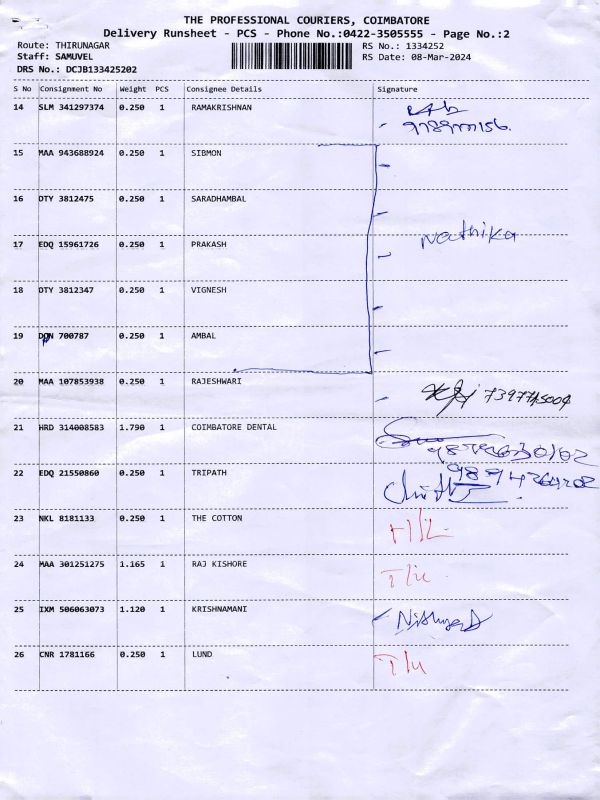 THE PROFESSIONAL COURIERS, COIMBATORE
Delivery Runsheet - PCS - Phone No.:0422-3505555 - Page No.:2
Route: THIRUNAGAR
Staff: SAMUVEL
DRS No.: DCJB133425202
RS No.: 1334252
RS Date: 08-Mar-2024
S No Consignment No Weight PCS Consignee Details Signature
14 SLM 341297374 0.250 1 RAMAKRISHNAN
15 MAA 943688924 0.250 1 SIBMON
16 DTY 3812475 0.250 1 SARADHAMBAL
17 EDQ 15961726 0.250 1 PRAKASH Nethika
18 DTY 3812347 0.250 1 VIGNESH
19 700787 0.250 1 AMBAL
20 MAA 107853938 0.250 1 RAJESHWARI
21 HRD 314008583 1.790 1 COIMBATORE DENTAL
22 EDQ 21550860 0.250 1 TRIPATH
23 NKL 8181133 0.250 1 THE COTTON
24 MAA 301251275 1.165 1 RAJ KISHORE
25 IXM 506063073 1.120 1 KRISHNAMANI
26 CNR 1781166 0.250 1 LUND